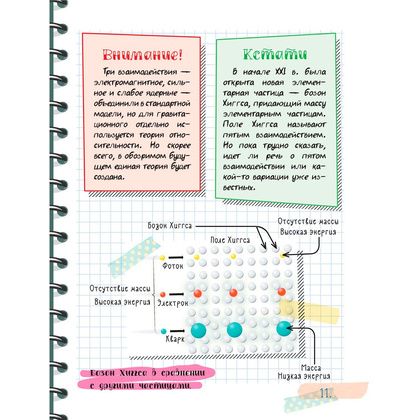 Внимание!
Три взаимодействия —
электромагнитное, силь-
ное и слабое ядерные —
объединили в стандартной
модели, но для гравита-
ционного отдельно ис-
пользуется теория отно-
сительности. Но скорее
всего, в обозримом буду-
щем единая теория будет
создана.
Кстати
В начале XXI в. была
открыта новая элемен-
тарная частица — бозон
Хиггса, придающий массу
элементарным частицам.
Поле Хиггса называют
пятым взаимодействием.
Но пока трудно сказать,
идет ли речь о пятом
взаимодействии или ка-
кой-то вариации уже из-
вестных.
Бозон Хиггса
Поле Хиггса
Отсутствие массы
Высокая энергия
Фотон
Отсутствие массы
Высокая энергия
Электрон
Кварк
Масса
Низкая энергия
Бозон Хиггса в сравнении
с другими частицами.
11